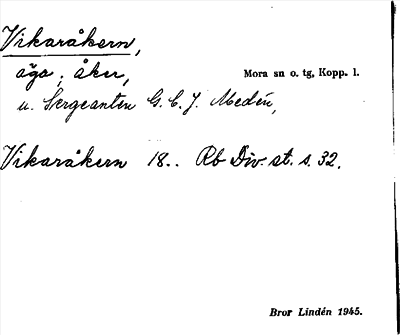 Vikaråkern,
äga, åker,
Mora sn o. tg, Kopp. l.
u. Sergeanten G. C. J. Medén,
Vikaråkern 18.. Rb Div. st. s. 32.
Bror Lindén 1945.